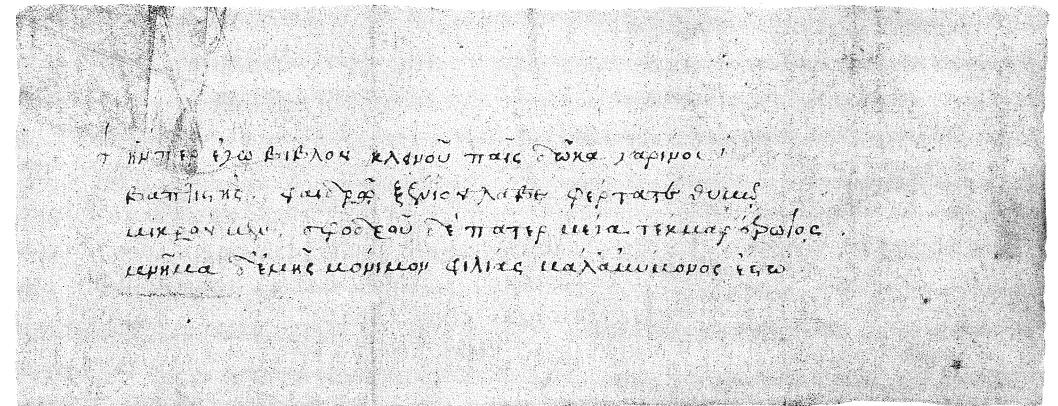 † ἥνπερ ἔχω βίβλον κλεινοῦ παῖς δῶκα χαρίνος
φαιδρῷ ξείνιον λάβε φέρτατε θυμῷ
μικρὸν μὲν, σφοδροῦ δὲ πάτερ μέγα τέκμαρ ἔρωτος.
μνῆμα δ' ἐμῆς μόνιμον φιλίας μάλ' ἀμύμονος ἔστω